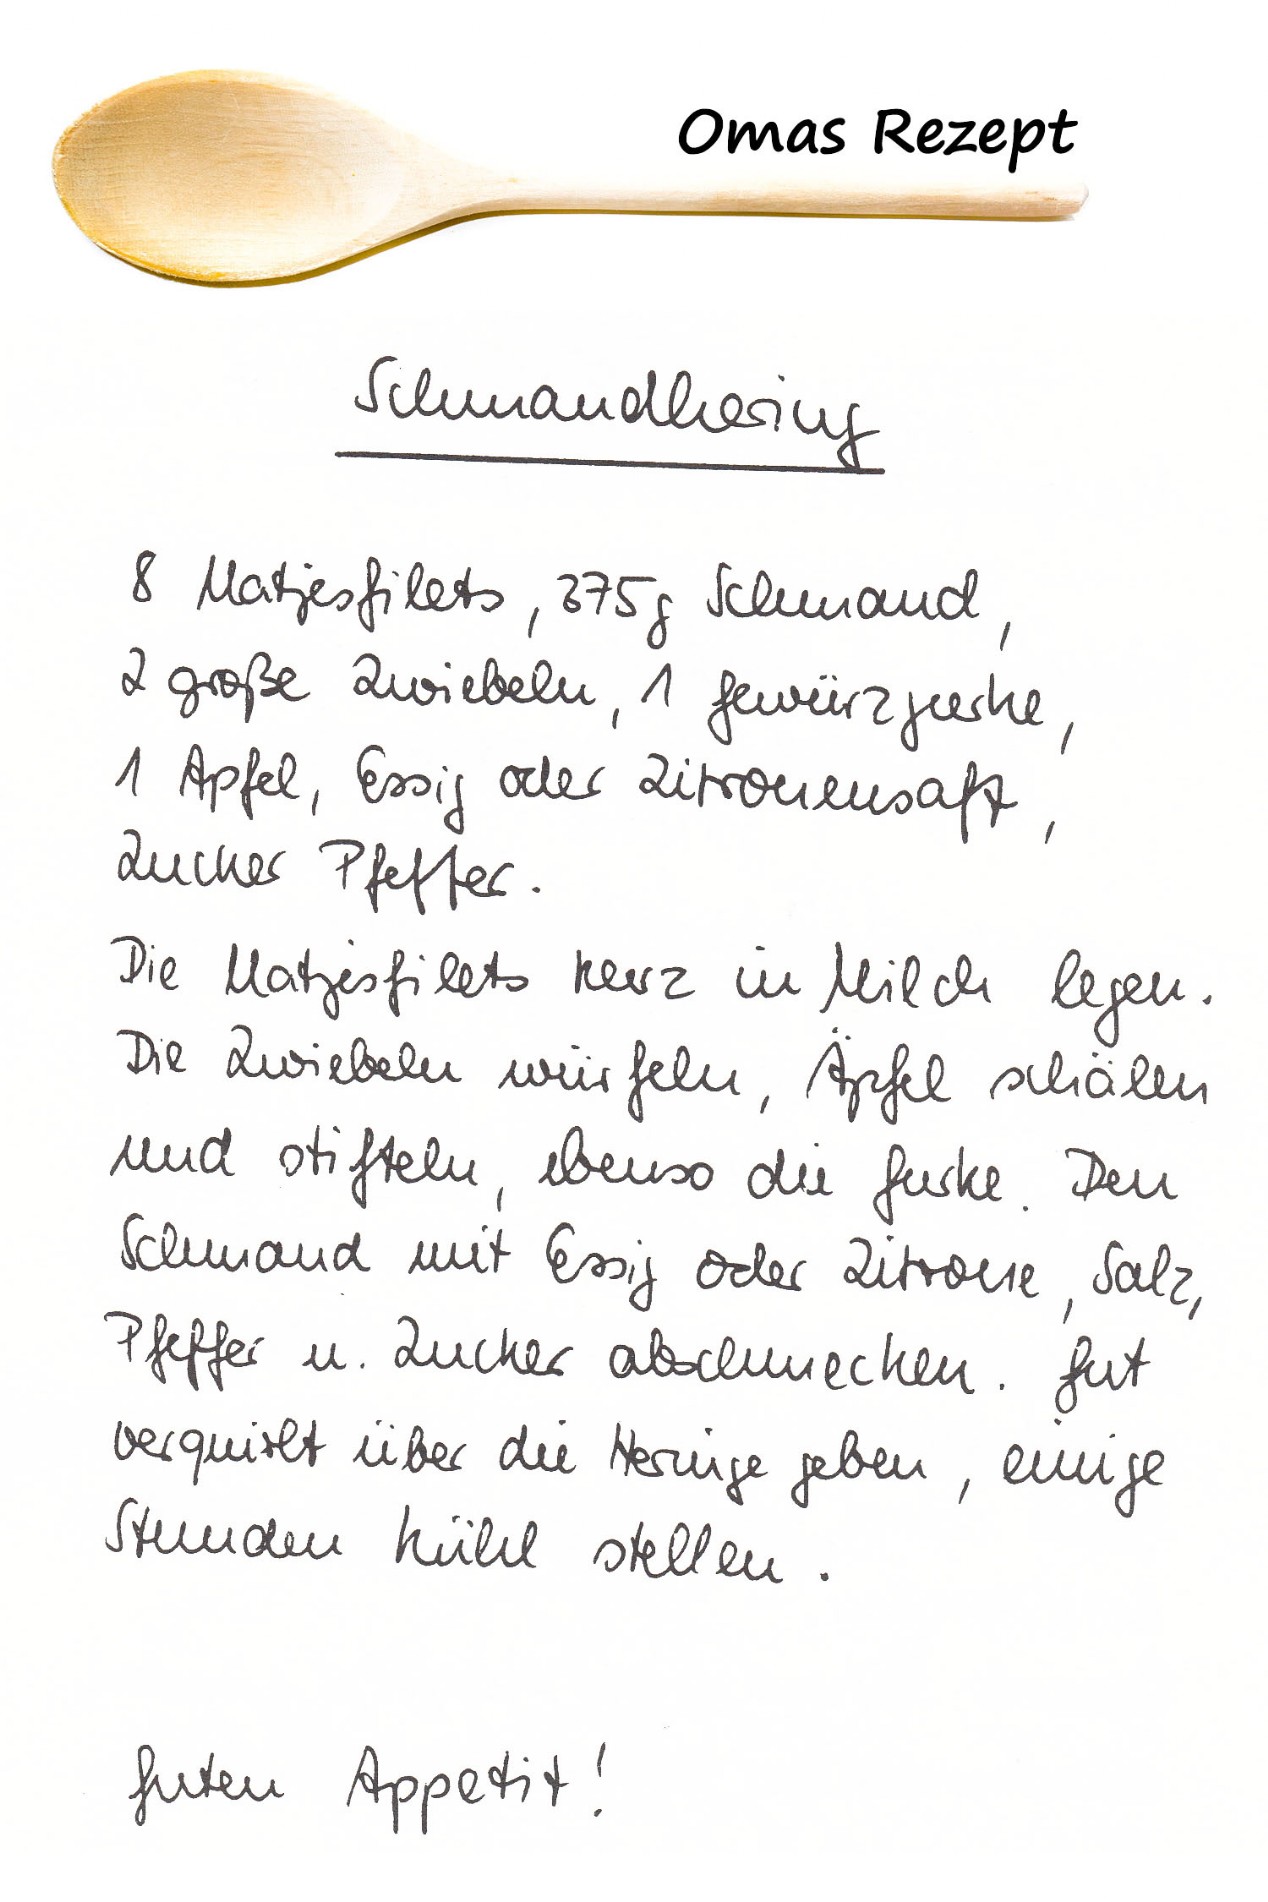 Omas Rezept
Schmandhering
8 Matjesfilets, 375g Schmand,
2 große Zwiebeln, 1 Gewürzgurke,
1 Apfel, Essig oder Zitronensaft,
Zucker Pfeffer.
Die Matjesfilets kurz in Milch legen.
Die Zwiebeln würfeln, Äpfel schälen
und stifteln, ebenso die Gurke. Den
Schmand mit Essig oder Zitrone, Salz,
Pfeffer u. Zucker abschmecken. Gut
verquirlt über die Heringe geben, einige
Stunden kühl stellen.
Guten Appetit!